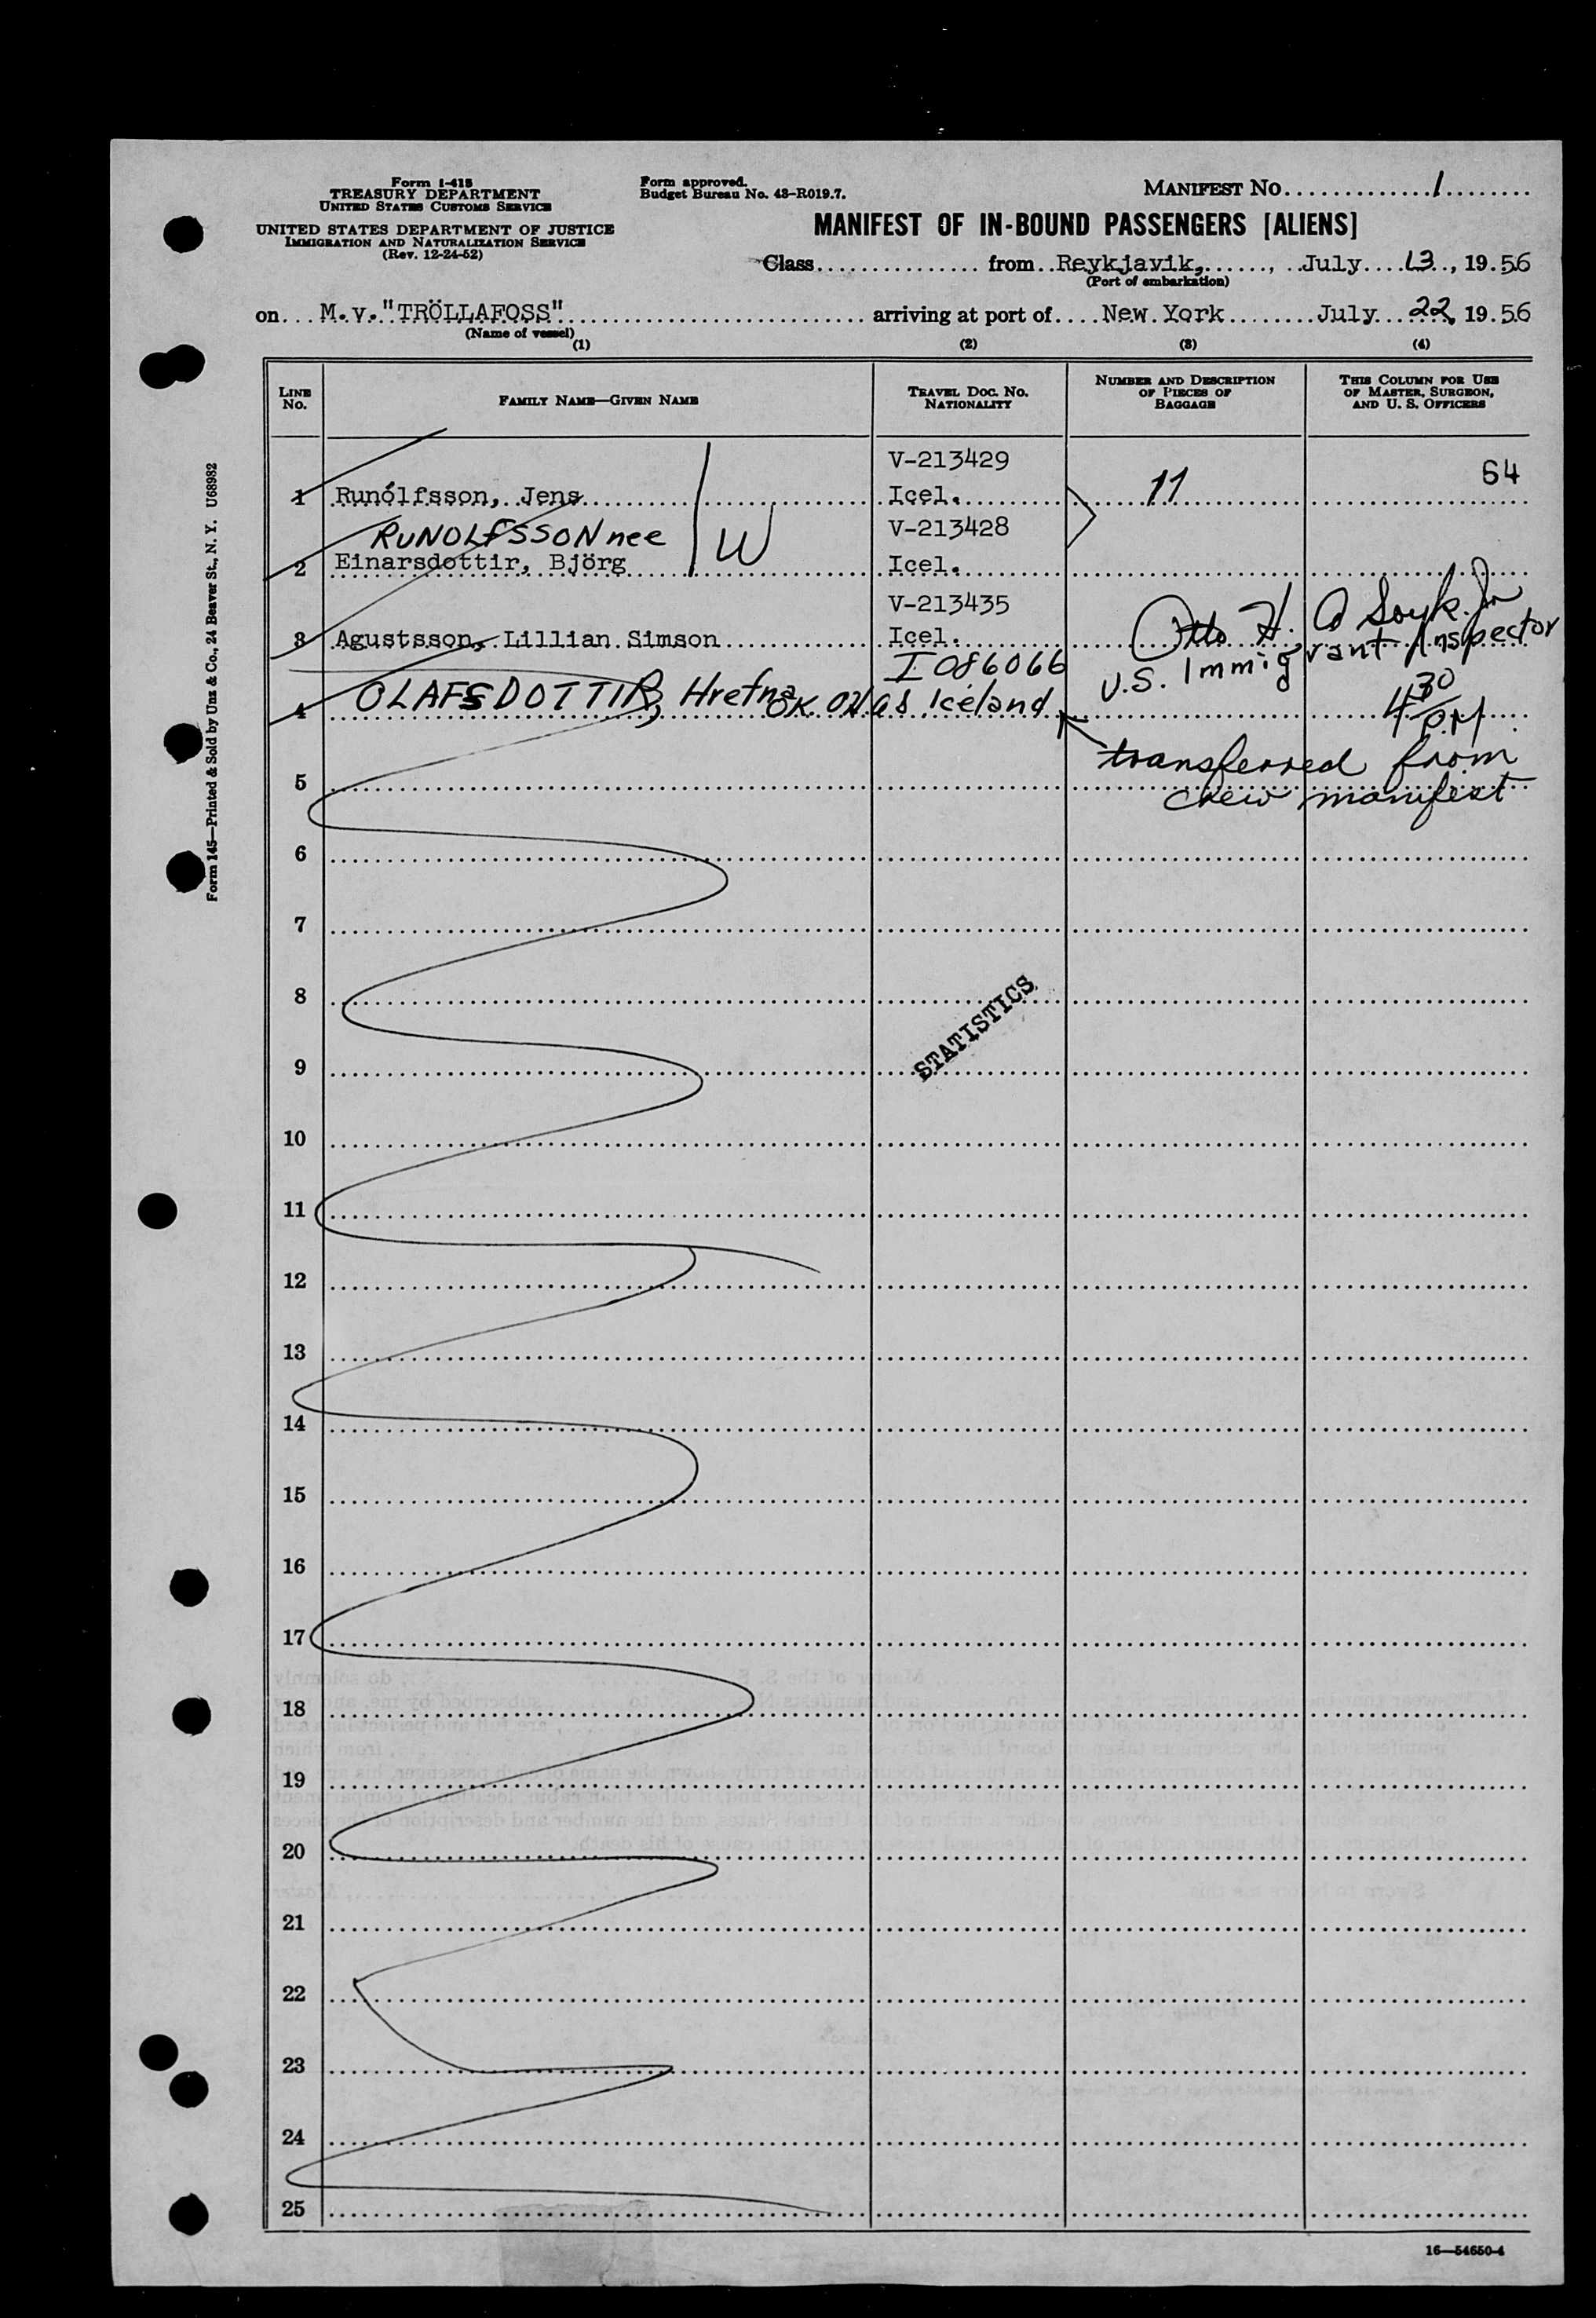 Form I-415
TREASURY DEPARTMENT
UNITED STATES CUSTOMS SERVICE
UNITED STATES DEPARTMENT OF JUSTICE
IMMIGRATION AND NATURALIZATION SERVICE
(Rev. 12-24-52)
Form approved.
Budget Bureau No. 43-R019.7.
MANIFEST NO. 1
MANIFEST OF IN-BOUND PASSENGERS [ALIENS]
Class from Reykjavik, July 13, 1956
(Port of embarkation)
on M.v. "TRÖLLAFOSS" arriving at port of New York July 22, 1956
(Name of vessel)
(1) (2) (3) (4)
LINE No.
FAMILY NAME—GIVEN NAME
TRAVEL DOC. NO. NATIONALITY
NUMBER AND DESCRIPTION OF PIECES OF BAGGAGE
THIS COLUMN FOR USE OF MASTER, SURGEON, AND U. S. OFFICERS
V-213429
1 Runólfsson, Jens Icel. 11 64
RUNOLFSSON nee W V-213428
2 Einarsdottir, Björg Icel.
V-213435
3 Agustsson, Lillian Simson Icel.
Otto H.
U.S. Immigrant Inspector
I 086066
4 OLAFSDOTTIR, Hrefna OK Iceland
4 30 P.M.
transferred from
crew manifest
5
6
7
8
STATISTICS
9
10
11
12
13
14
15
16
17
18
19
20
21
22
23
24
25
16—54650-4
Form 145—Printed & Sold by Unz & Co., 24 Beaver St., N. Y. U68982